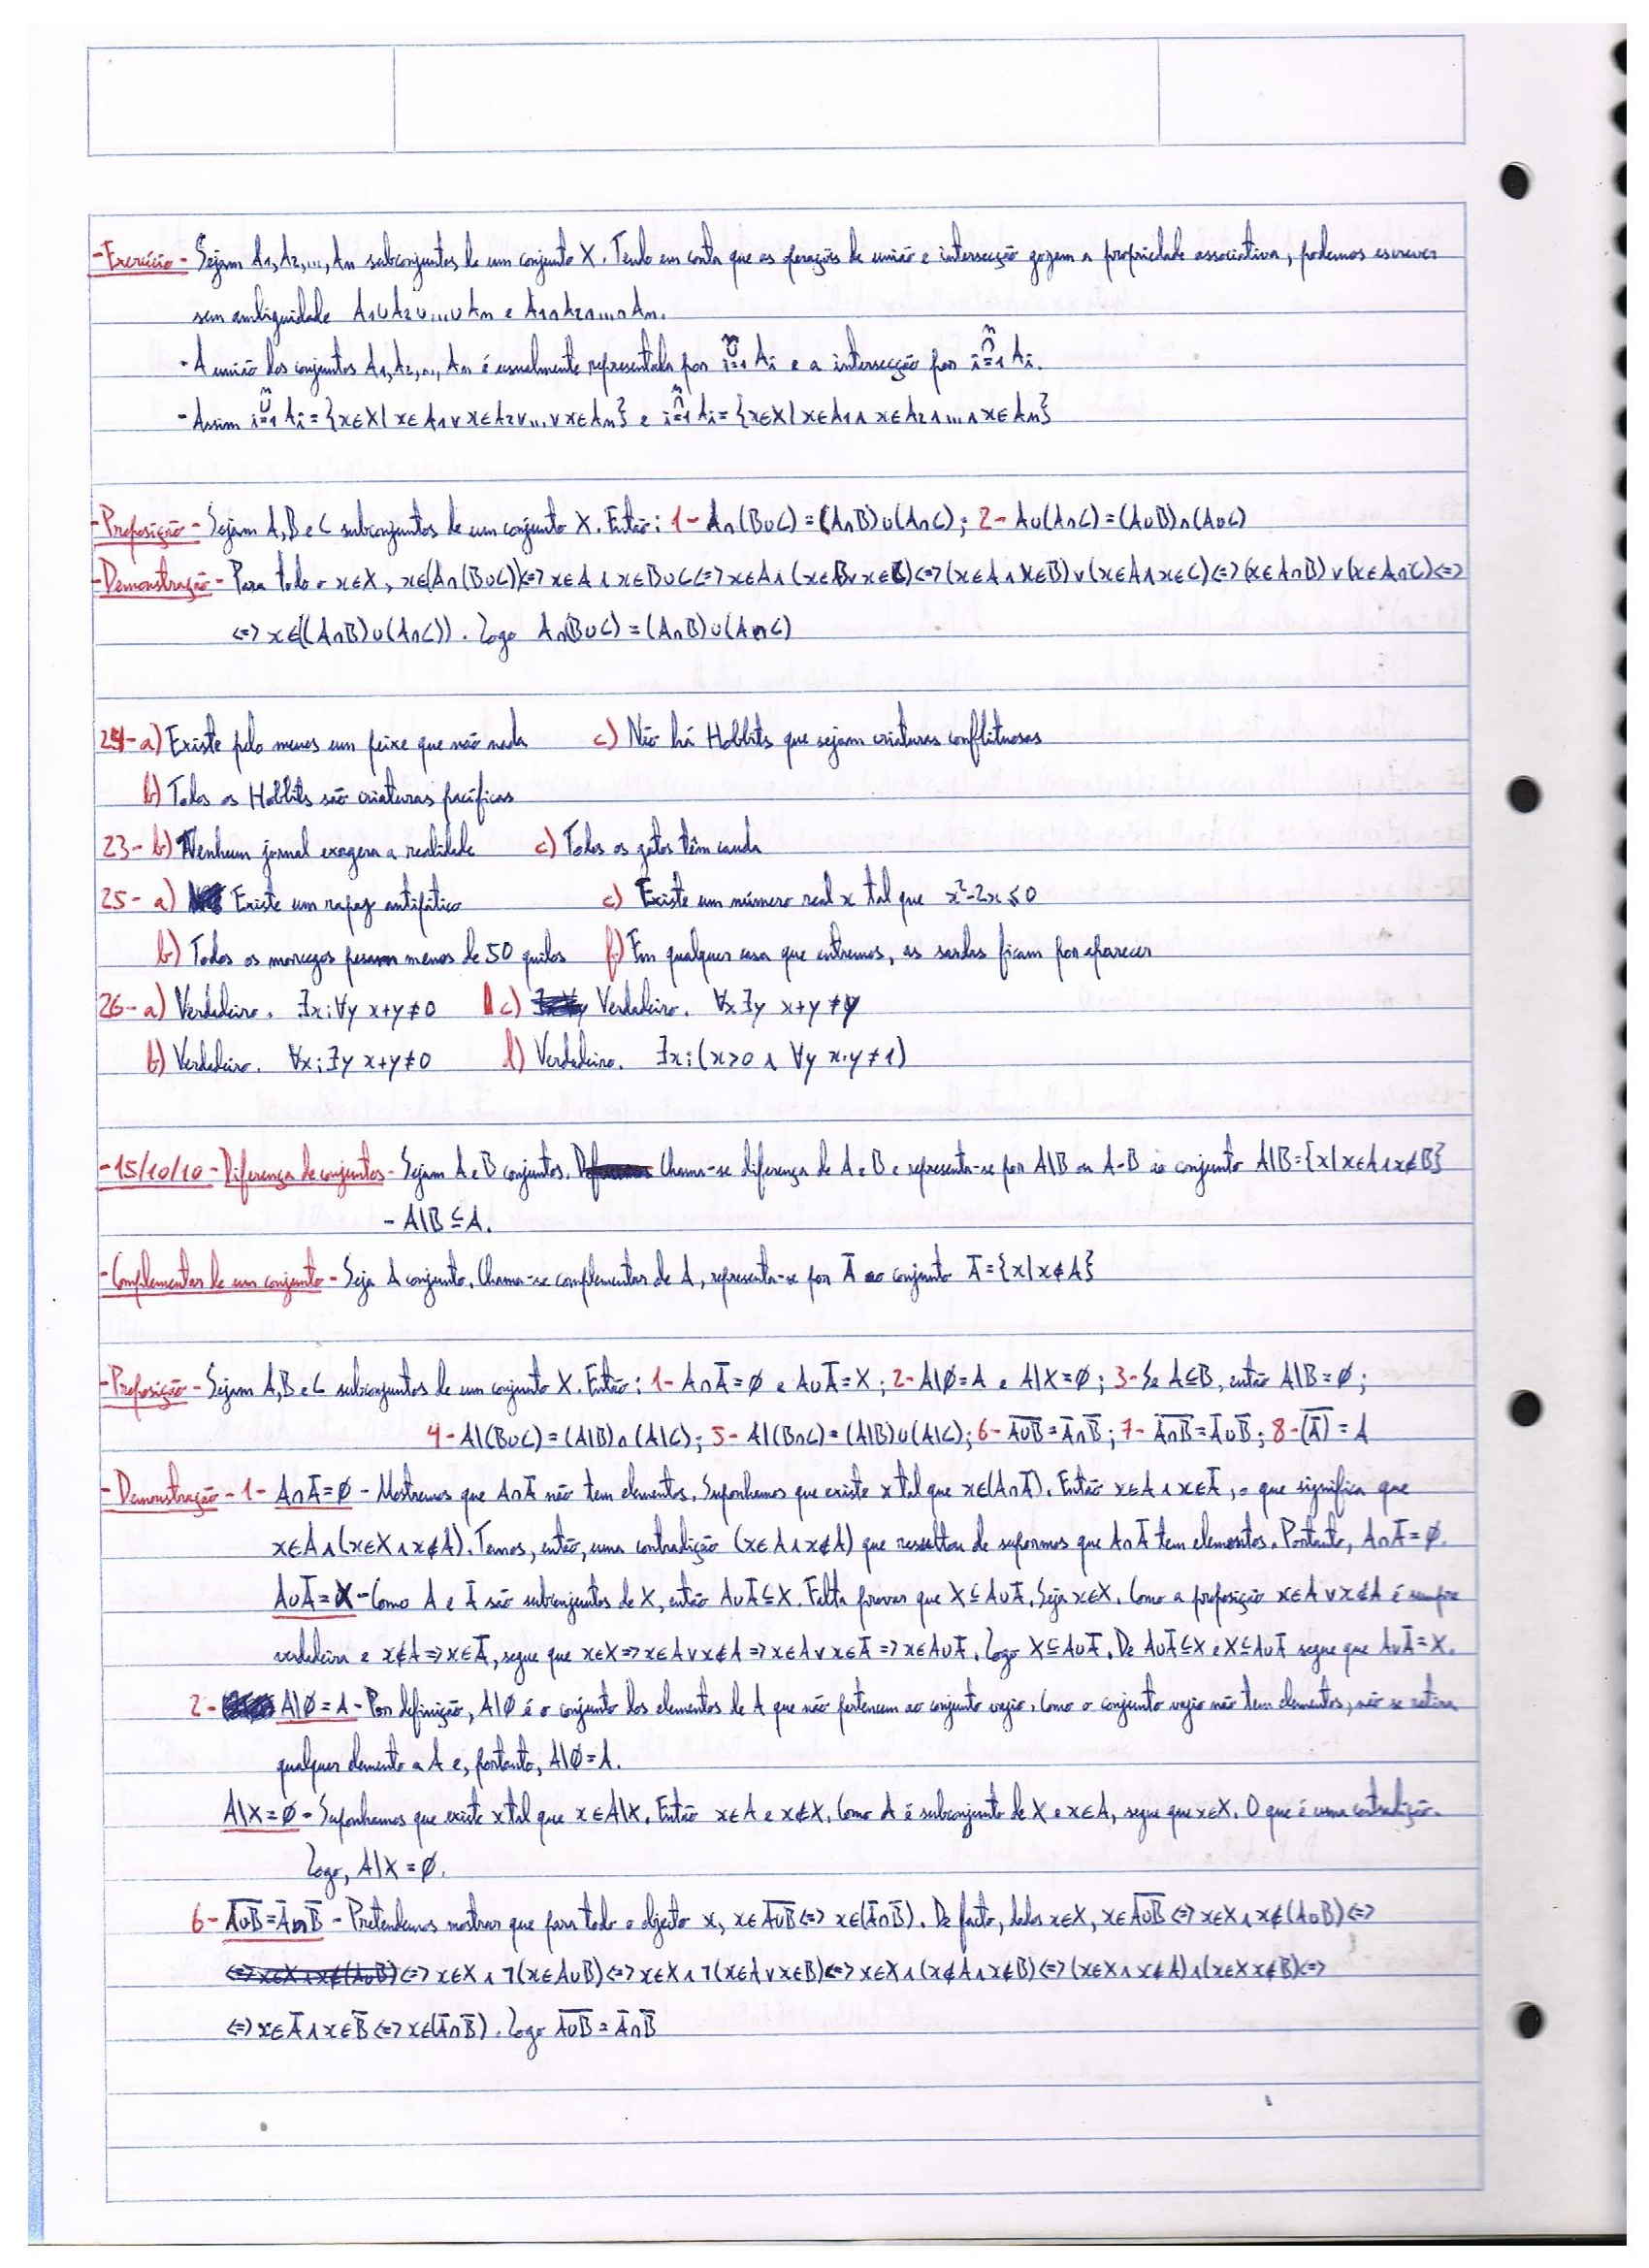 -Exercício- Sejam A1, A2, ..., An subconjuntos de um conjunto X. Tendo em conta que as operações de união e intersecção gozem a propriedade associativa, podemos escrever
sem ambiguidade A1∪A2∪...∪An e A1∩A2∩...∩An.
- A união dos conjuntos A1, A2, ..., An é usualmente representada por ⋃ⁿi=1 Ai e a intersecção por ⋂ⁿi=1 Ai.
- Assim ⋃ⁿi=1 Ai = {x∈X | x∈A1 ∨ x∈A2 ∨ ... ∨ x∈An} e ⋂ⁿi=1 Ai = {x∈X | x∈A1 ∧ x∈A2 ∧ ... ∧ x∈An}
-Proposição- Sejam A, B e C subconjuntos de um conjunto X. Então: 1- A∩(B∪C) = (A∩B)∪(A∩C); 2- A∪(A∩C) = (A∪B)∩(A∪C)
-Demonstração- Para todo o x∈X, x∈(A∩(B∪C)) <=> x∈A ∧ x∈B∪C <=> x∈A ∧ (x∈B ∨ x∈C) <=> (x∈A ∧ x∈B) ∨ (x∈A ∧ x∈C) <=> (x∈A∩B) ∨ (x∈A∩C) <=>
<=> x∈((A∩B)∪(A∩C)). Logo A∩(B∪C) = (A∩B)∪(A∩C)
24- a) Existe pelo menos um peixe que não nada c) Não há Hobbits que sejam criaturas conflituosas
b) Todos os Hobbits são criaturas pacíficas
23- b) Nenhum jornal exagera a realidade c) Todos os gatos têm cauda
25- a) Existe um rapaz antipático c) Existe um número real x tal que x²-2x≤0
b) Todos os morcegos pesam menos de 50 quilos f) Em qualquer casa que entremos, as sardas ficam por aparecer
26- a) Verdadeiro. ∃x: ∀y x+y≠0 c) Verdadeiro. ∀x ∃y x+y≠y
b) Verdadeiro. ∀x: ∃y x+y≠0 d) Verdadeiro. ∃x: (x>0 ∧ ∀y x·y≠1)
-15/10/10- Diferença de conjuntos- Sejam A e B conjuntos. Chama-se diferença de A e B e representa-se por A\B ou A-B ao conjunto A\B = {x | x∈A ∧ x∉B}
- A\B ⊆ A.
-Complementar de um conjunto- Seja A conjunto. Chama-se complementar de A, representa-se por Ā ao conjunto Ā = {x | x∉A}
-Proposição- Sejam A, B e C subconjuntos de um conjunto X. Então: 1- A∩Ā=∅ e A∪Ā=X; 2- A\∅=A e A\X=∅; 3- Se A⊆B, então A\B=∅;
4- A\(B∪C) = (A\B)∩(A\C); 5- A\(B∩C) = (A\B)∪(A\C); 6- A̅∪̅B̅ = Ā∩B̅; 7- A̅∩̅B̅ = Ā∪B̅; 8- (̅Ā)̅ = A
-Demonstração- 1- A∩Ā=∅ - Mostremos que A∩Ā não tem elementos. Suponhamos que existe x tal que x∈(A∩Ā). Então x∈A ∧ x∈Ā, o que significa que
x∈A ∧ (x∈X ∧ x∉A). Temos, então, uma contradição (x∈A ∧ x∉A) que resultou de supormos que A∩Ā tem elementos. Portanto, A∩Ā=∅.
A∪Ā=X - Como A e Ā são subconjuntos de X, então A∪Ā⊆X. Falta provar que X⊆A∪Ā. Seja x∈X. Como a proposição x∈A ∨ x∉A é sempre
verdadeira e x∉A => x∈Ā, segue que x∈X => x∈A ∨ x∉A => x∈A ∨ x∈Ā => x∈A∪Ā. Logo X⊆A∪Ā. De A∪Ā⊆X e X⊆A∪Ā segue que A∪Ā=X.
2- A\∅=A - Por definição, A\∅ é o conjunto dos elementos de A que não pertencem ao conjunto vazio. Como o conjunto vazio não tem elementos, não se retira
qualquer elemento a A e, portanto, A\∅=A.
A\X=∅ - Suponhamos que existe x tal que x∈A\X. Então x∈A e x∉X. Como A é subconjunto de X e x∈A, segue que x∈X. O que é uma contradição.
Logo, A\X=∅.
6- A̅∪̅B̅ = Ā∩B̅ - Pretendemos mostrar que para todo o objecto x, x∈A̅∪̅B̅ <=> x∈(Ā∩B̅). De facto, dados x∈X, x∈A̅∪̅B̅ <=> x∈X ∧ x∉(A∪B) <=>
<=> x∈X ∧ x∉(A∪B) <=> x∈X ∧ ¬(x∈A∪B) <=> x∈X ∧ ¬(x∈A ∨ x∈B) <=> x∈X ∧ (x∉A ∧ x∉B) <=> (x∈X ∧ x∉A) ∧ (x∈X x∉B) <=>
<=> x∈Ā ∧ x∈B̅ <=> x∈(Ā∩B̅). Logo A̅∪̅B̅ = Ā∩B̅